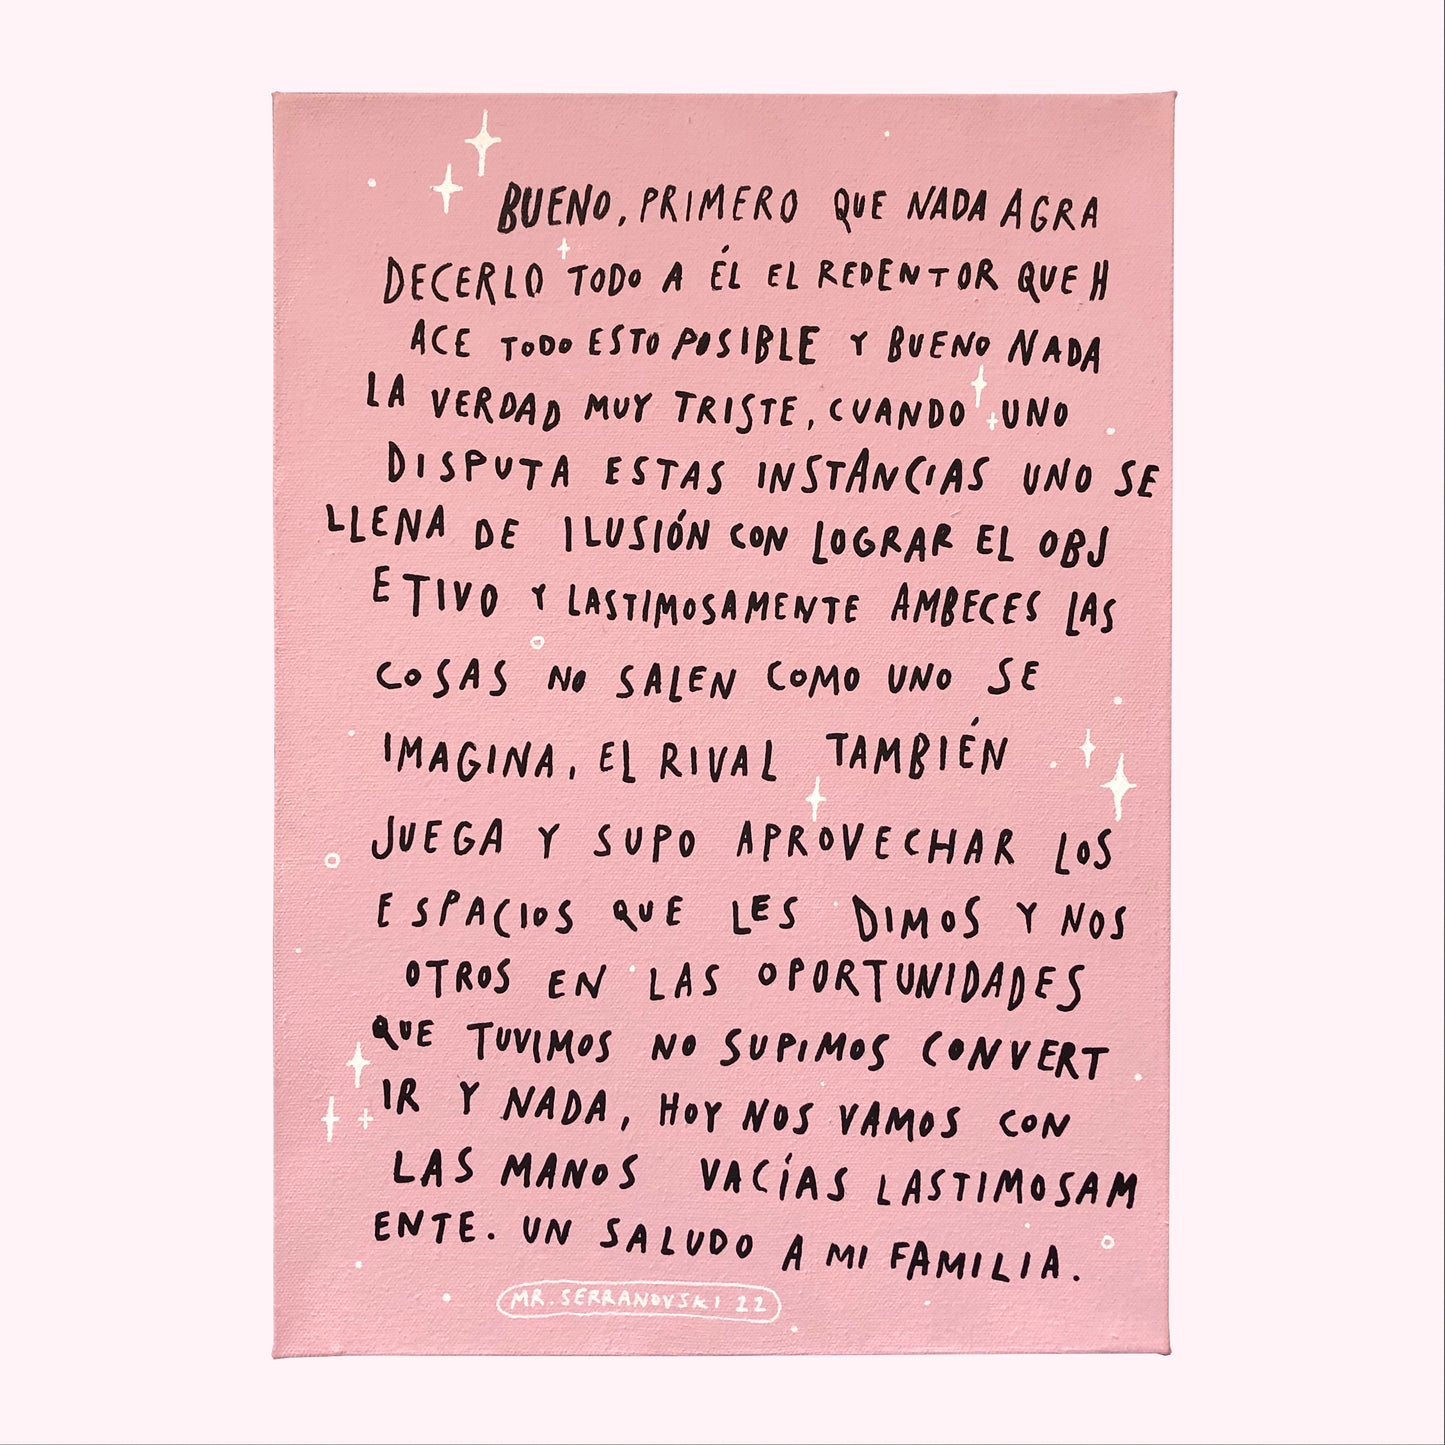 BUENO, PRIMERO QUE NADA AGRA
DECERLO TODO A ÉL EL REDENTOR QUE H
ACE TODO ESTO POSIBLE Y BUENO NADA
LA VERDAD MUY TRISTE, CUANDO UNO
DISPUTA ESTAS INSTANCIAS UNO SE
LLENA DE ILUSIÓN CON LOGRAR EL OBJ
ETIVO Y LASTIMOSAMENTE AMBECES LAS
COSAS NO SALEN COMO UNO SE
IMAGINA, EL RIVAL TAMBIÉN
JUEGA Y SUPO APROVECHAR LOS
ESPACIOS QUE LES DIMOS Y NOS
OTROS EN LAS OPORTUNIDADES
QUE TUVIMOS NO SUPIMOS CONVERT
IR Y NADA, HOY NOS VAMOS CON
LAS MANOS VACÍAS LASTIMOSAM
ENTE. UN SALUDO A MI FAMILIA.
MR. SERRANOVSKI 22